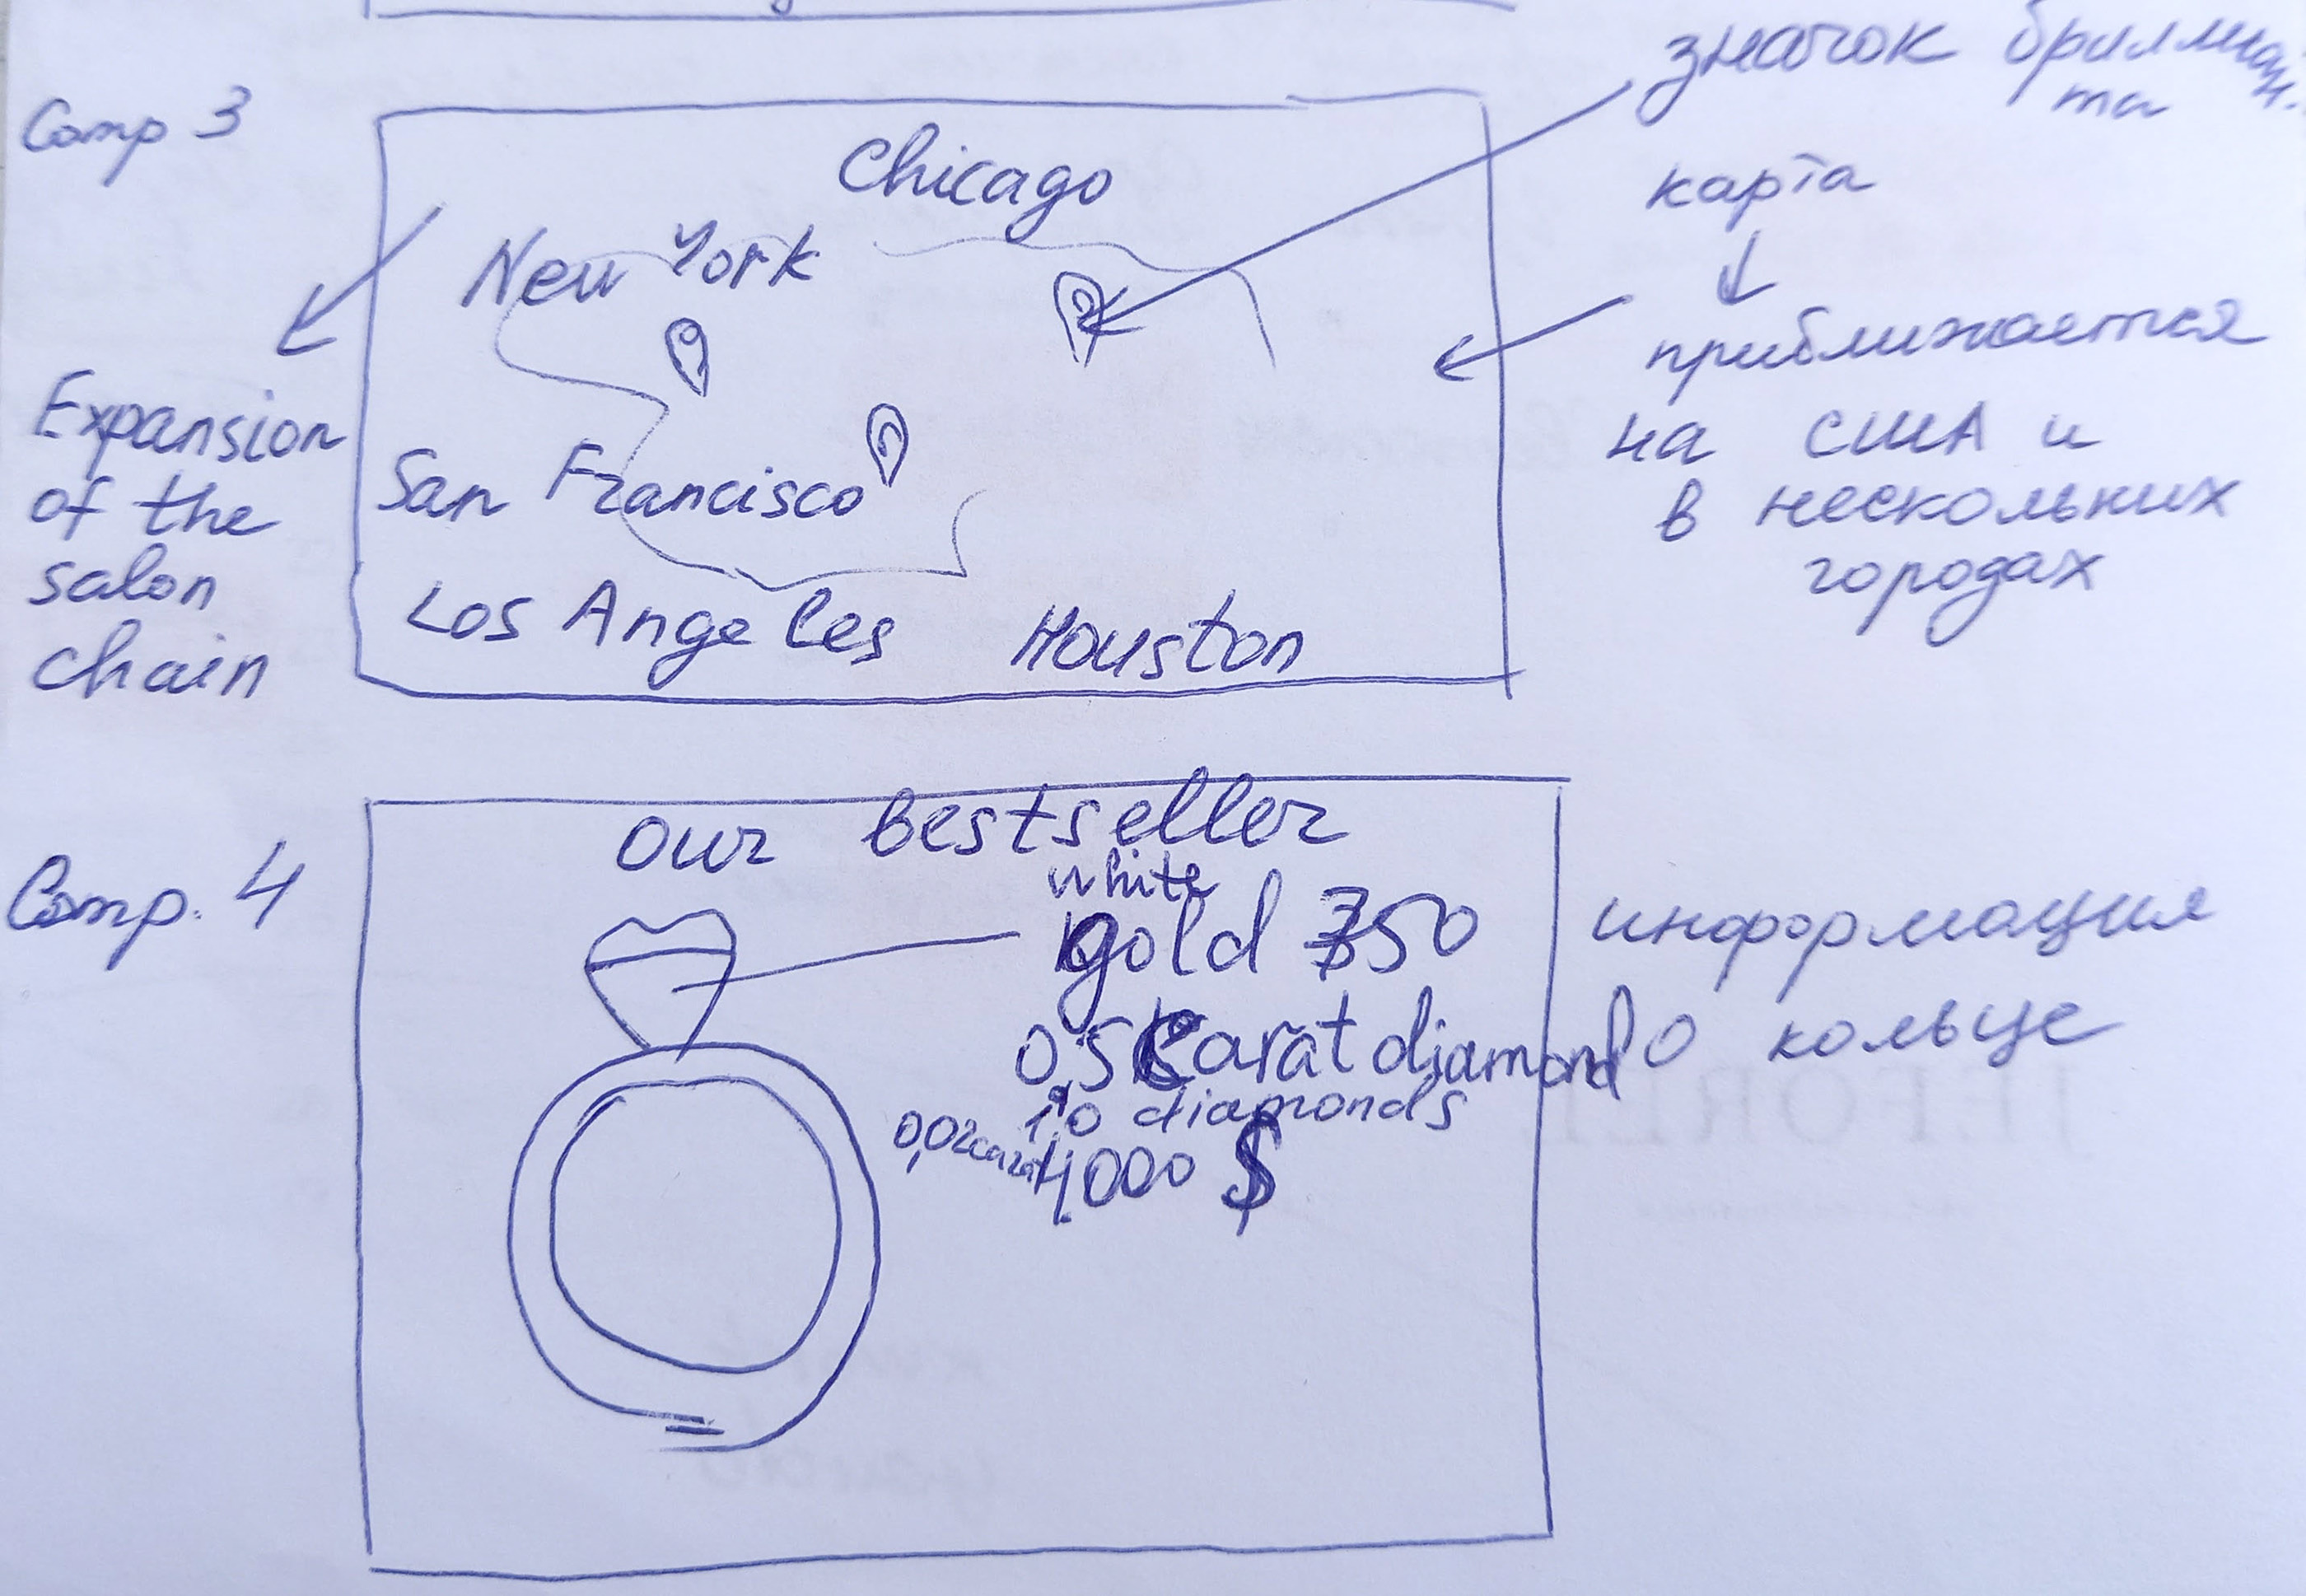 Comp 3
Chicago
New York
San Francisco
Los Angeles Houston
Expansion
of the
salon
chain
значок бриллиан.
та
карта
приближается
на США и
в нескольких
городах
Comp. 4
Our bestseller
white
gold 750
0,5 carat diamond
10 diamonds
0,02 carat
4000 $
информация
о кольце